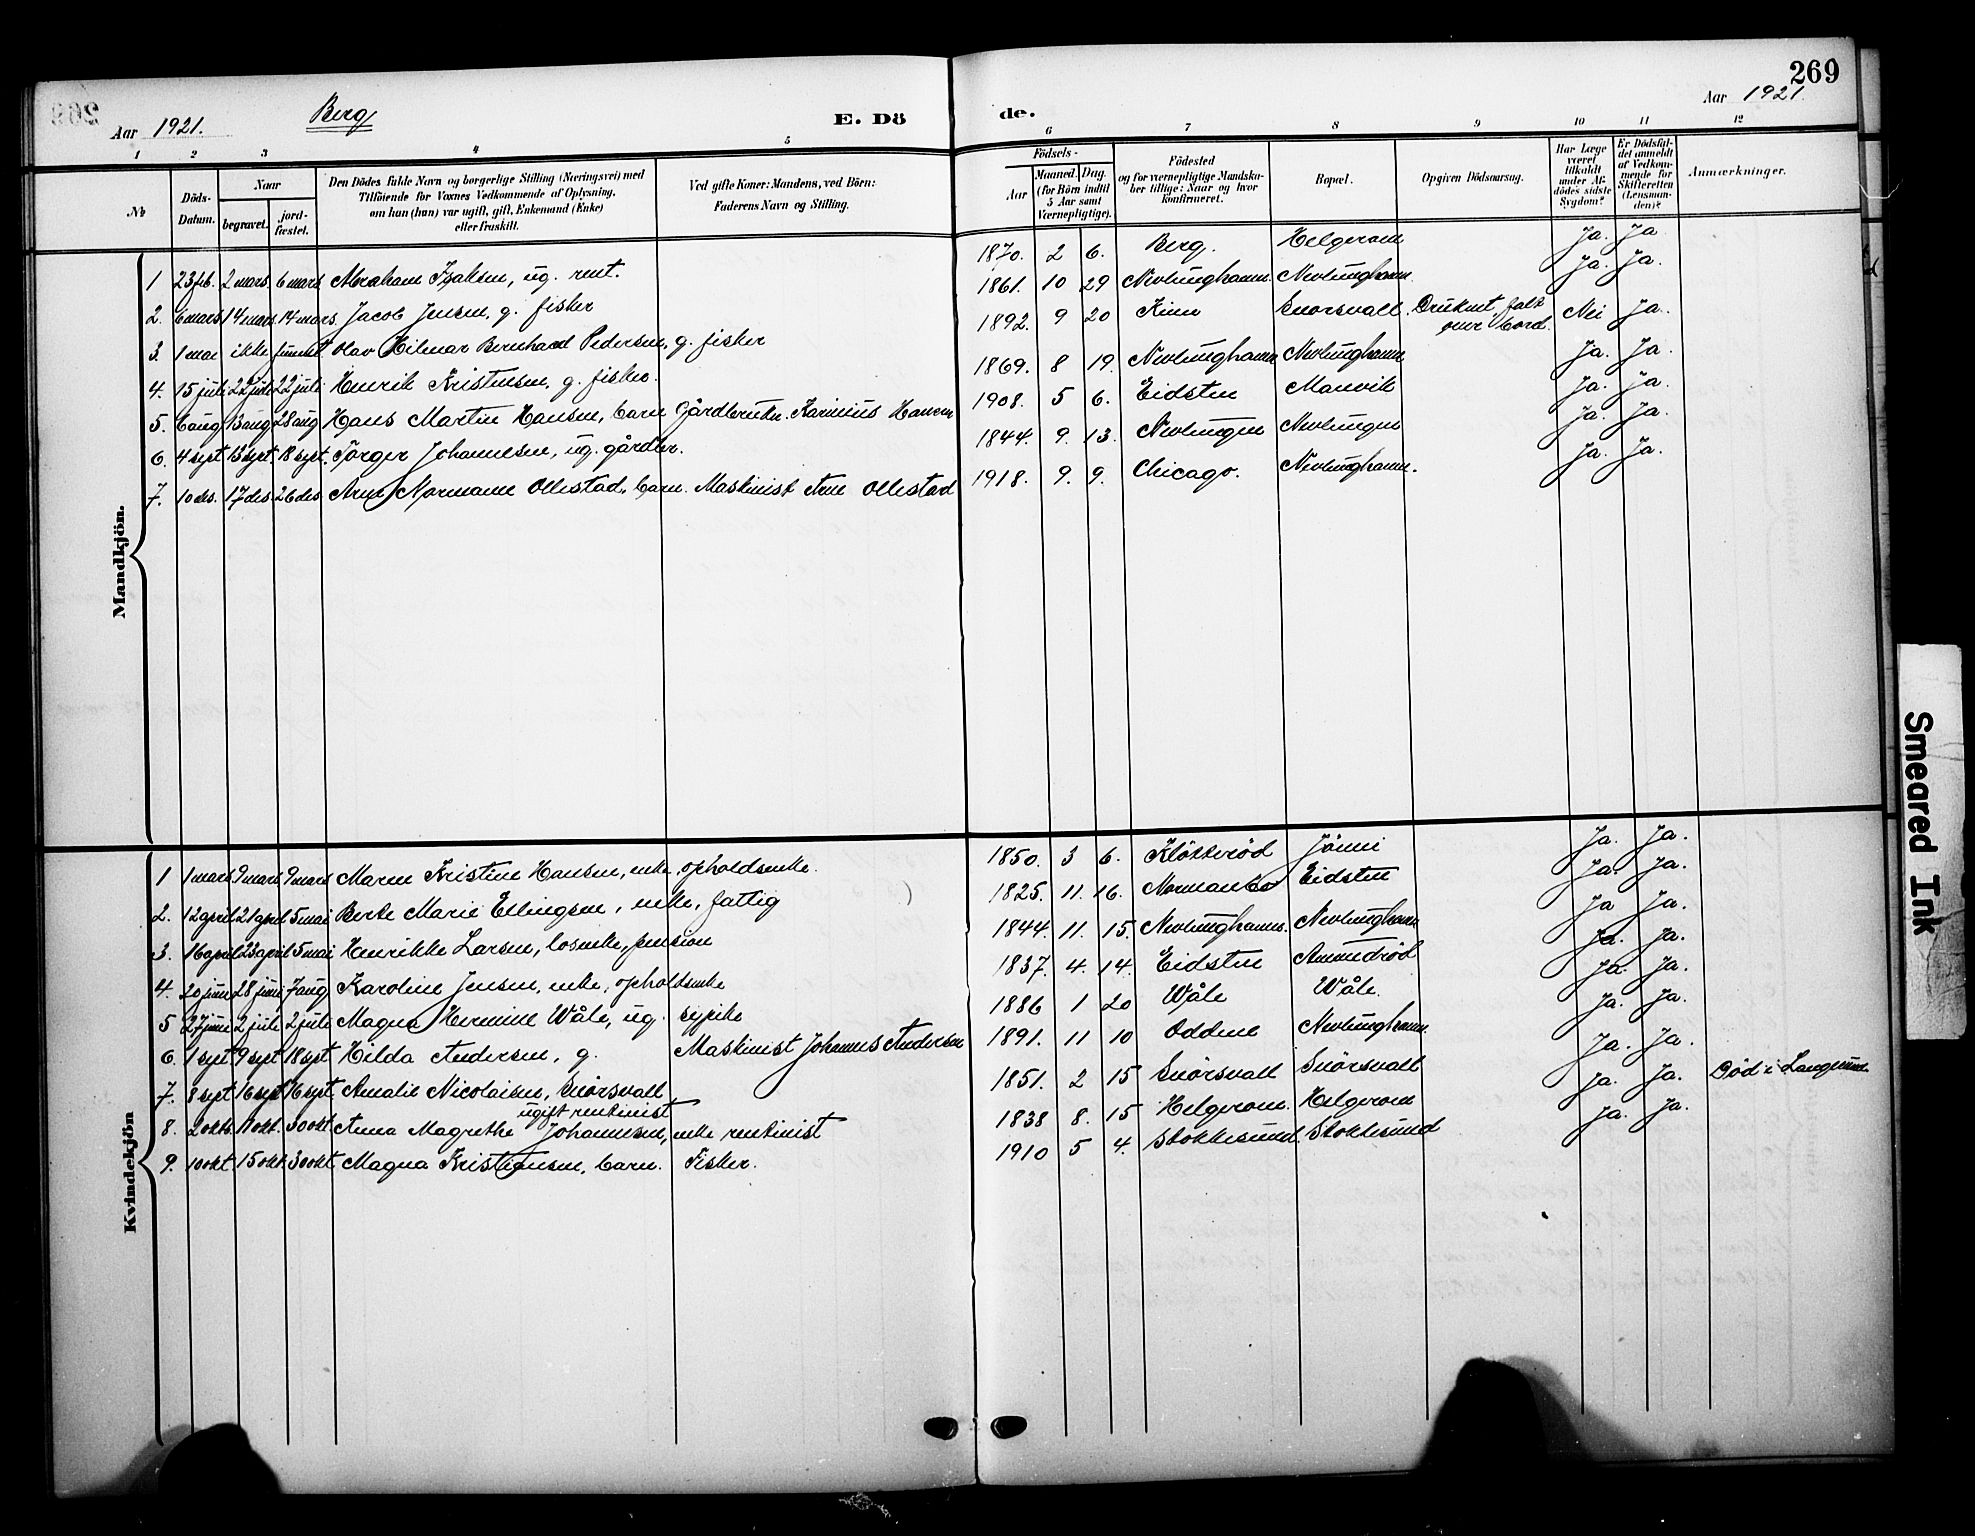 269
Aar 1921. Berg E. Dö de. Aar 1921.
1 2 3 4 5 6 7 8 9 10 11 12
№
Döds-Datum.
Naar
begravet.
jord-fæstet.
Den Dödes fulde Navn og borgerlige Stilling (Næringsvei) med
Tilföiende for Voxnes Vedkommende af Oplysning,
om han (hun) var ugift, gift, Enkemand (Enke)
eller fraskilt.
Ved gifte Koner: Mandens, ved Börn:
Faderens Navn og Stilling.
Födsels-
Aar
Maaned. Dag.
(for Börn indtil
5 Aar samt
Værnepligtige).
Födested
og for værnepligtige Mandska-
ber tillige: Naar og hvor
konfirmeret.
Bopæl.
Opgiven Dödsaarsag.
Har Læge
været
tilkaldt
under Af-
dödes sidste
Sygdom?
Er Dödsfal-
det anmeldt
af Vedkom-
mende for
Skifteretten
(Lensman-
den)?
Anmærkninger.
Mandkjön.
1 23 feb. 2 mars 6 mars Abraham Isaksen, ug. rent. 1870. 2 6. Berg. Helgeroen Ja. Ja
2. 6 mars 14 mars 14 mars. Jacob Jensen, g. fisker 1861. 10 29 Nevlunghavn Nevlunghavn. Ja. Ja.
3. 1 mai ikke funnet Olav Hilmar Bernhard Pedersen, g. fisker 1892. 9 20 Kinn Snørsvall. Druknet, falt
over bord. Nei Ja.
4. 15 juli 22 juli 22 juli Henrik Kristensen, g. fisker. 1869. 8 19. Nevlunghavn Nevlunghavn Ja. Ja.
5. 6 aug 13 aug 28 aug Hans Martin Hansen, barn Gårdbruker. Karinius Hansen 1908. 5 6. Eidsten Manvik Ja. Ja.
6. 4 sept 13 sept. 18 sept. Törger Johannesen, ug. gårdbr. 1844. 9. 13. Nevlungen Nevlungen Ja. Ja.
7. 10 des. 17 des 26 des Arne Normann Ollestad, barn. Maskinist Arne Ollestad 1918. 9. 9. Chicago. Nevlunghavn. Ja. Ja.
Kvindekjön
1 1 mars 9 mars 9 mars Maren Kristine Hansen, enke, opholdsenke. 1850. 3 6. Kløkkerød Jønni Ja. Ja.
2. 12 april 21 april 5 mai Berte Marie Ellingsen, enke, fattig 1825. 11. 16. Normanbo Eidsten Ja. Ja.
3. 16 april 23 april 5 mai Henrikke Larsen, losenke, pension 1844. 11. 15. Nevlunghavns. Nevlunghavn Ja Ja.
4. 20 juni 28 juni 7 aug Karoline Jensen, enke, opholdsenke 1837. 4. 14. Eidsten Amundrød Ja. Ja.
5 27 juni 2 juli 2 juli Magna Hermine Wåle, ug. sypike 1886 1 20 Wåle Wåle. Ja. Ja.
6 1 sept 9 sept 18 sept Hilda Andersen, g. Maskinist Johannes Andersen 1891. 11 10 Oddene Nevlunghavn. Ja. Ja.
7. 8 sept 16 sept 16 sept. Amalie Nicolaisen, Snørsvall
ugift rentenist 1851. 2 15 Snørsvall Snørsvall Ja. Ja.
8. 2 okt. 11 okt. 30 okt Anna Magrethe Johannesen, enke rentenist 1838 8. 15 Helgeroen. Helgeroen Ja. Ja. Død i Langesund
9. 10 okt 15 okt 30 okt Magna Kristiansen, barn. Fisker. 1910 5 4. Stokkesund Stokkesund Ja. Ja.
Smeared Ink